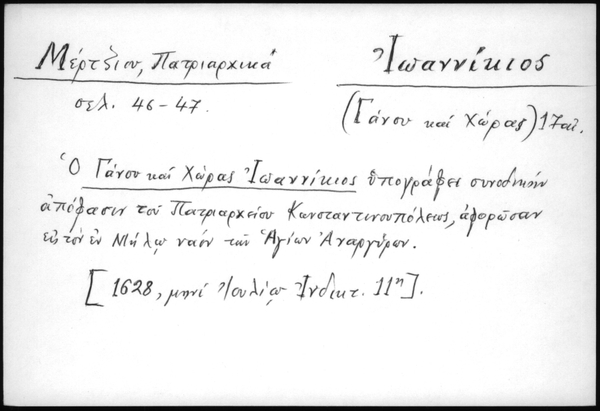 Μέρτζιου, Πατριαρχικά
σελ. 46-47.
Ἰωαννίκιος
(Γάνου καὶ Χώρας) 17 αἰ.
Ὁ Γάνου καὶ Χώρας Ἰωαννίκιος ὑπογράφει συνοδικὴν
ἀπόφασιν τοῦ Πατριαρχείου Κωνσταντινουπόλεως, ἀφορῶσαν
εἰς τὸν ἐν Μήλῳ ναὸν τῶν Ἁγίων Ἀναργύρων.
[1628, μηνὶ Ἰουλίῳ Ἰνδικτ. 11η].